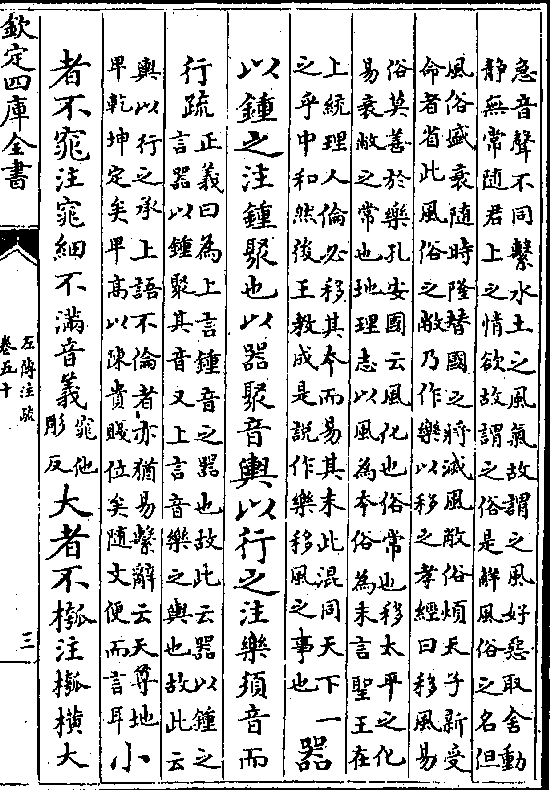 急音聲不同繫水土之風氣故謂之風好惡取舍動
静無常隨君上之情欲故謂之俗是解風俗之名但
風俗盛衰隨時隆替國之將滅風敝俗煩天子新受
命者省此風俗之敝乃作樂以移之孝經曰移風易
俗莫善於樂孔安國云風化也俗常也移太平之化
易衰敝之常也地理志以風為本俗為末言聖王在
上統理人倫必移其本而易其末此混同天下一
之乎中和然後王教成是說作樂移風之事也
器
以鍾之注鍾聚也以器聚音輿以行之注樂須音而
行疏
正義曰為上言鍾音之器也故此云器以鍾之
言器以鍾聚其音又上言音樂之輿也故此云
輿以行之承上語不倫者亦猶易繫辭云天尊地
卑乾坤定矣卑高以陳貴賤位矣隨文便而言耳
小
者不窕注窕細不滿音義
窕他
彫反
大者不摦注摦橫大
欽定四庫全書
左傳注疏
卷五十
三